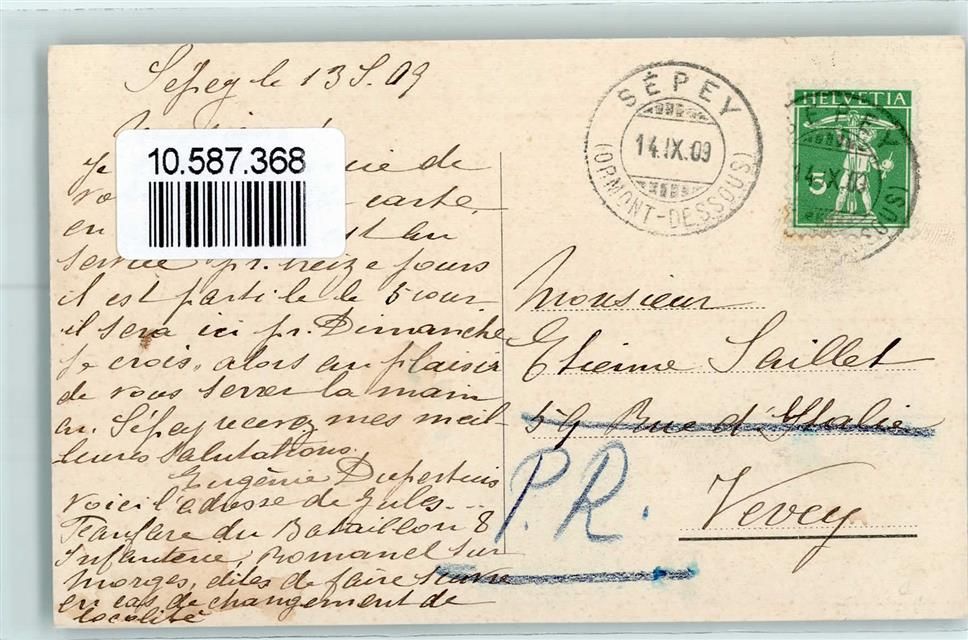 Sépey le 13 S. 09
10.587.368
de
carte,
en
service pr. treize jours
il est parti le 5 cour
il sera ici pr. Dimanche
je crois, alors au plaisir
de vous serrer la main
au Sépey recevez mes meil-
leures salutations.
Eugénie Dupertuis
voici l'adresse de Jules....
Fanfare du Bataillon 8
Infanterie, Romanel sur
Morges, dites de faire suivre
en cas de changement de
localité
SÉPEY
14.IX.09
(ORMONT-DESSOUS)
HELVETIA
5
Monsieur
Etienne Saillet
59 Rue d'Italie
P.R.
Vevey